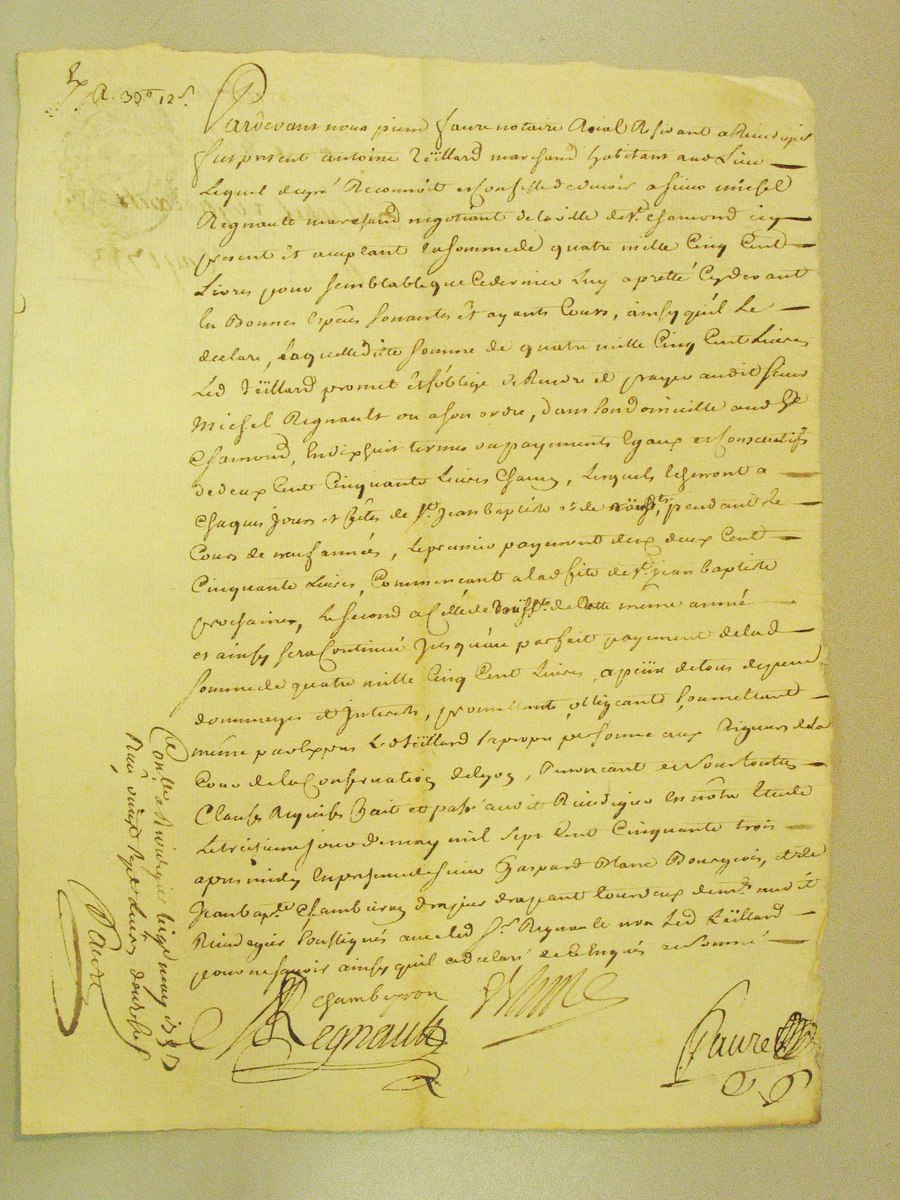 A. 39tt 12s.
Pardevant nous pierre faure notaire Roial Reservant a Riverie
fut present antoine teïllard marchand habitant aud Lieu
Lequel de gré Reconnoit et Confesse devoir a sieur michel
Regnault marchand negotiant de la ville de St. Chamond icy
present et acceptant la somme de quatre mille Cinq Cent
Livres pour semblable que Ce dernier Luy a pretté Cy devant
En Bonnes Especes sonnantes et ayants Cours, ainsy qu'il Le
declare, Laquelle ditte somme de quatre mille Cinq Cent Livres
Led teïllard promet et s'oblige de Rendre et payer audit sieur
Michel Regnault ou a son ordre, dans son domicille aud St
Chamond, En dix huit termes ou payements Egaux et Consecutifs
de deux Cent Cinquante Livres Chacun, Lesquels Echeront a
Chaques jours et fêtes de St. Jean baptiste et de pendant Le
Cours de neuf années, Le premier payement de deux Cent
Cinquante Livres, Commencant a lad fête de St. jean baptiste
prochaine, Le second a Celle de de Cette même année
et ainsy sera Continué jusqu'au parfait payement de lad
somme de quatre mille Cinq Cent Livres, a peine de tous depens
dommages et Interets, promettant, obligeant, soumettant
même par Exprès Led teïllard sa propre personne aux Rigueurs de la
Cour de la Conservation de Lyon, Renoncant et sous toutes
Clauses Requises fait et passé audit En notre Etude
Le treisieme jour de may mil sept Cent Cinquante trois
apres midy En presence de sieur Gaspard Blanc Bourgeois, et de
Jean bapte. Chambeiron drapier drapant tous deux audit
soussignés avec led Sr. Regnault non Led teïllard
pour ne savoir ainsy qu'il a declaré de Ce Enquis et sommé
Chambeyron
Blanc
Regnault
faure
may 1753
Reçu Livres
Faure